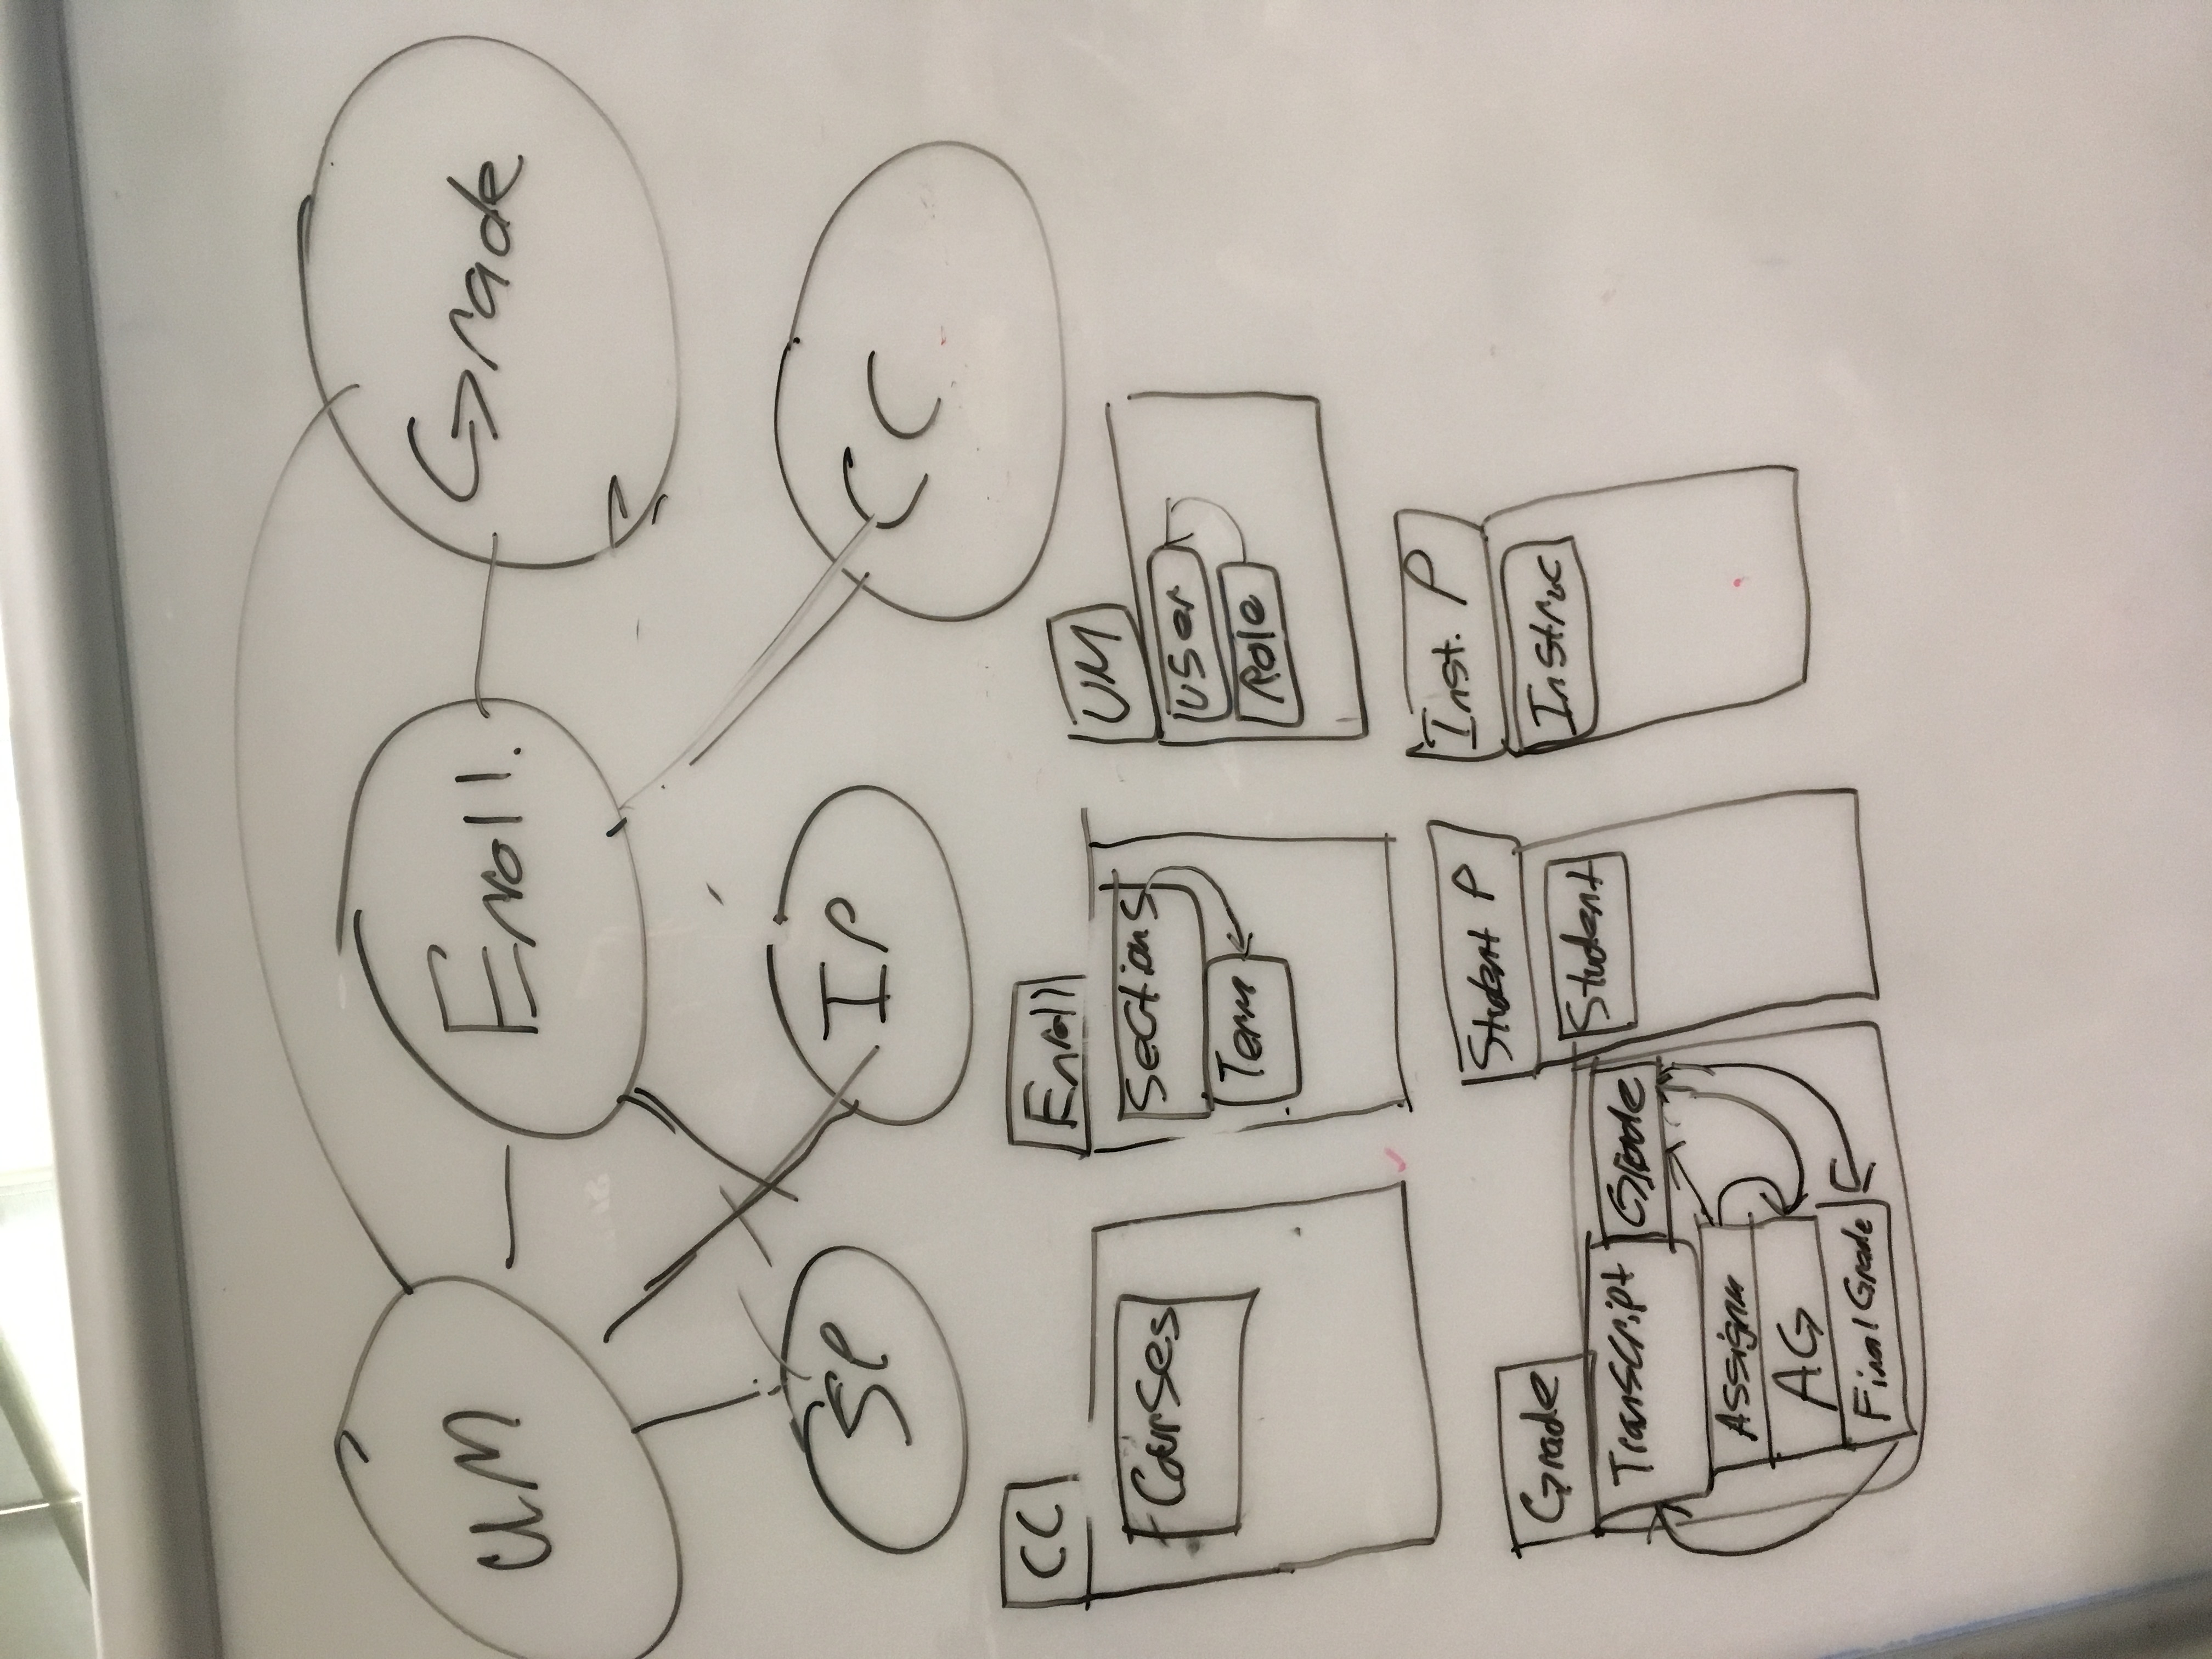 UM
Enroll.
Grade
SP
IP
CC
CC
Courses
Enroll
Sections
Term
UM
User
Role
Grade
Transcript
Grade
Assignm
AG
Final Grade
Student P
Student
Inst. P
Instruc